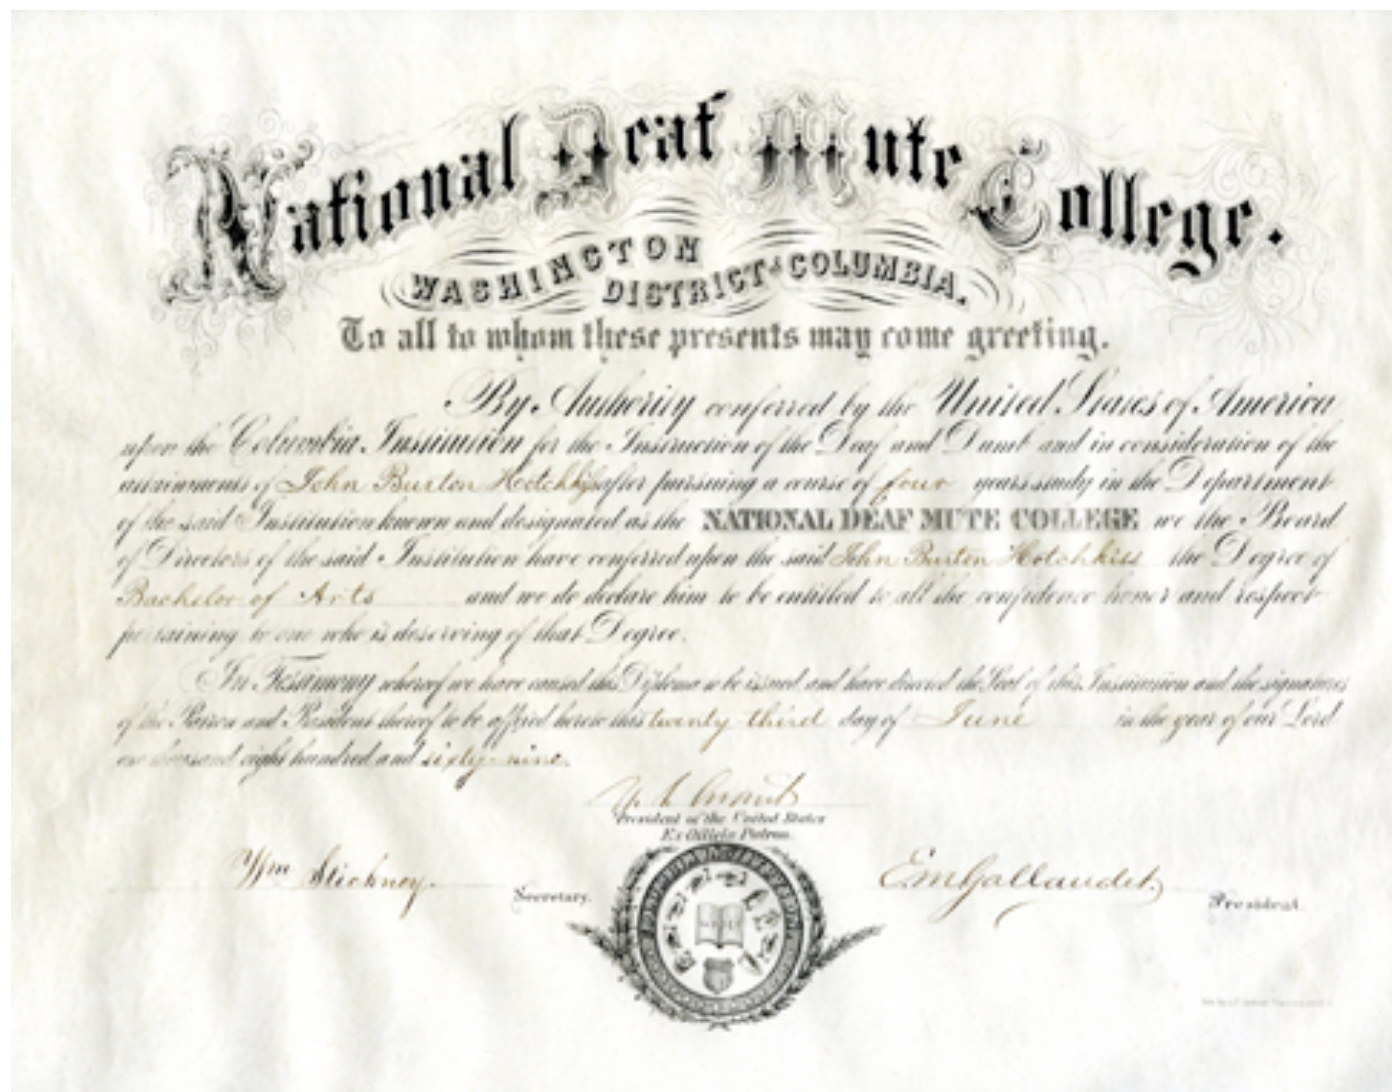 National Deaf Mute College.
WASHINGTON
DISTRICT of COLUMBIA.
To all to whom these presents may come greeting.
By Authority conferred by the United States of America
upon the Columbia Institution for the Instruction of the Deaf and Dumb and in consideration of the
attainments of John Burton Hotchkiss after pursuing a course of four years study in the Department
of the said Institution known and designated as the NATIONAL DEAF MUTE COLLEGE we the Board
of Directors of the said Institution have conferred upon the said John Burton Hotchkiss the Degree of
Bachelor of Arts and we do declare him to be entitled to all the confidence honor and respect
pertaining to one who is deserving of that Degree.
In Testamony whereof we have caused this Diploma to be issued, and have directed the Seal of this Institution and the signatures
of the Patron and President thereof to be affixed hereto this twenty third day of June in the year of our Lord
one thousand eight hundred and sixty-nine.
U. S. Grant
President of the United States
Ex Officio Patron.
Wm Stickney.
Secretary.
E M Gallaudet,
President.